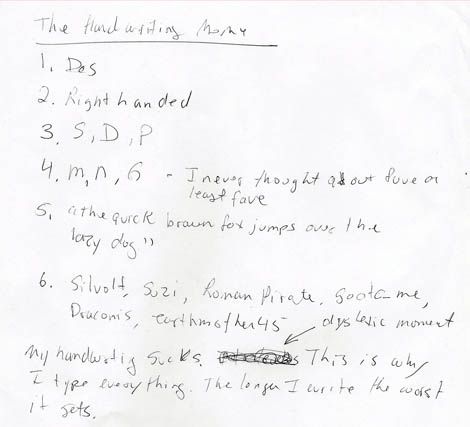 The Handwriting Meme
1. Des
2. Right handed
3. S, D, P
4. m, n, G - I never thought about fave or
least fave
5. "the quick brown fox jumps over the
lazy dog"
6. Silvolt, Suzi, Roman Pirate, goota-me,
Draconis, earthmother45
dyslexic moment
My handwritig sucks. This is why
I type everything. The longer I write the worst
it gets.